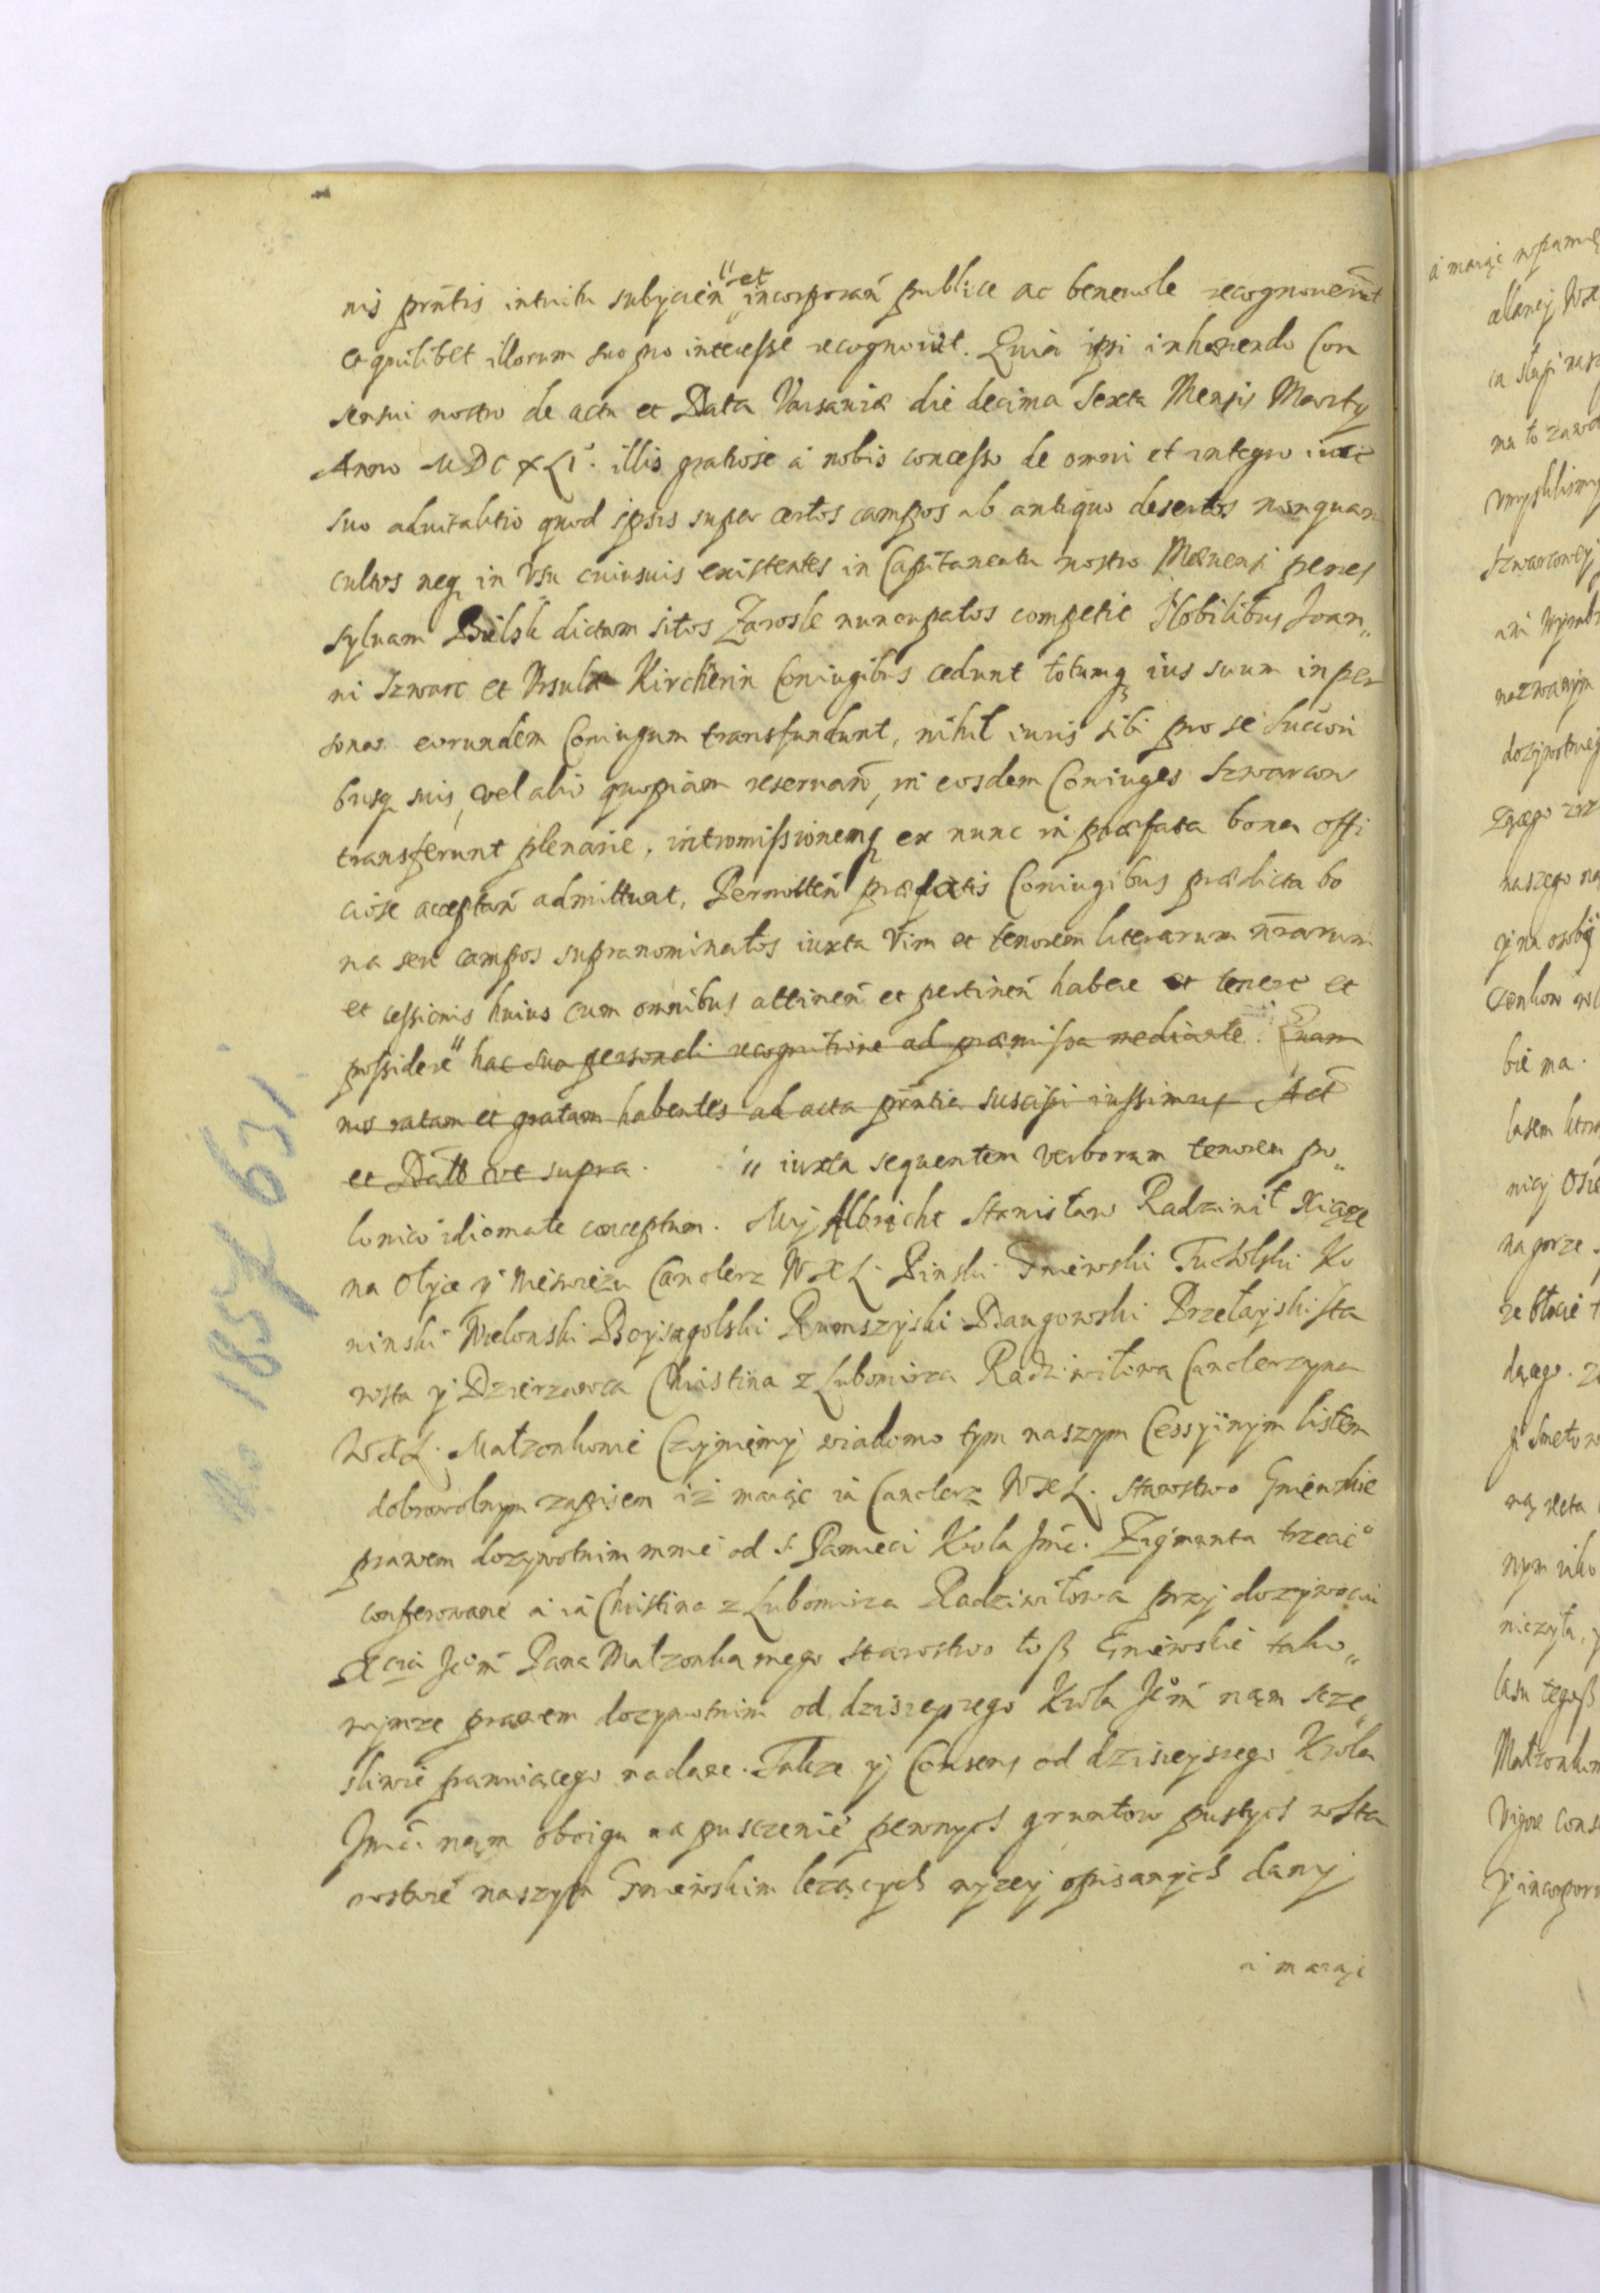 nis prñtis intuitu subycień " et incorporań publice ac beneuole recognouerũt
et quilibet illorum suo pro interesse recognouit. Quia ipsi inhærendo Con
sensui nostro de actu et Data Varsauiæ die decima Sexta Mensis Marty
Anno MDCXLI. illis gratiose à nobis concesso de omni et integro iure
suo aduitalitio quod ipsis super certos campos ab antiquo desertos nonquam
cultos neq in Vsu cuiusuis existentes in Capitaneatu nostro Mæuensi penes
syluam Bielsk dictam sitos Zarosle nuncupatos competit Nobilibus Joan„
ni Szwarc et Vrsulæ Kircherin Coniugibus cedunt totumq ius suum in per
sonas eorundem Coniugum transfundunt, nihil iuris sibi pro se succeri
busq suis, vel alio quopiam reseruań, in eosdem Coniuges Szwarcow
transferunt plenarie, intromissionemq ex nunc in præfata bona offi
ciose acceptań admittunt, Permitteń præfatis Coniugibus prædicta bo
na seu campos supranominatos iuxta Vim et tenorem literarum nrarum
et cessionis huius cum omnibus attineń et pertineń habere et tenere et
possidere " hac sua personali recognitione ad præmissa mediante. Quam
nos ratam et gratam habentes ad acta prñtia suscipi iussimus Act
et Datt vt supra. " iuxta sequentem verborum tenorem po„
lonico idiomate conceptum. My Albricht Stanisław Radziwił Xiąże
na Ołyce y Nieswieżu Canclerz WXL. Pinski Gniewski Tucholski Ko
ninski Wielonski Boysagolski Rumszyski Daugowski Przełayski sta
rosta y Dzierzawca Christina z Lubomirza Radziwiłowa Canclerzyna
WXL. Małzonkowie Czynięmy wiadomo tym naszym Cessyinym listem
dobrowolnym zapisem iż maiąc ia Canclerz WXL. starostwo Gniewskie
prawem dozywotnim mnie od S. Pamieci Krola Jmć. Zigmunta trzecie°
conferowane a ia Christina z Lubomirza Radziwiłowa przy dozywociu
Xcia Je°m Pana Małzonka mego starostwo toß Gniewskie tako„
wymze prawem dozywotnim od dzisieyszego Krola Je°m nam scze„
sliwie panuiącego nadane. Takze y Consens od dzisieyszego Króla
Jmći nąm oboigu na pusczenie pewnych gruntow pustych wsta
rostwie naszym Gniewskim leżących wyzey opisanych dany
a maiąc
No 1857 631
a maiąc wpamię
ma to zawo
vmyslilismy
Szwarcowej
nazwanym
dozywotniej
naszego na
bie ma.
lasem
nicy
na gorze
dącego.
nym iako
lasu tegoß
Małzonkom
Vigore cons
y incorpora